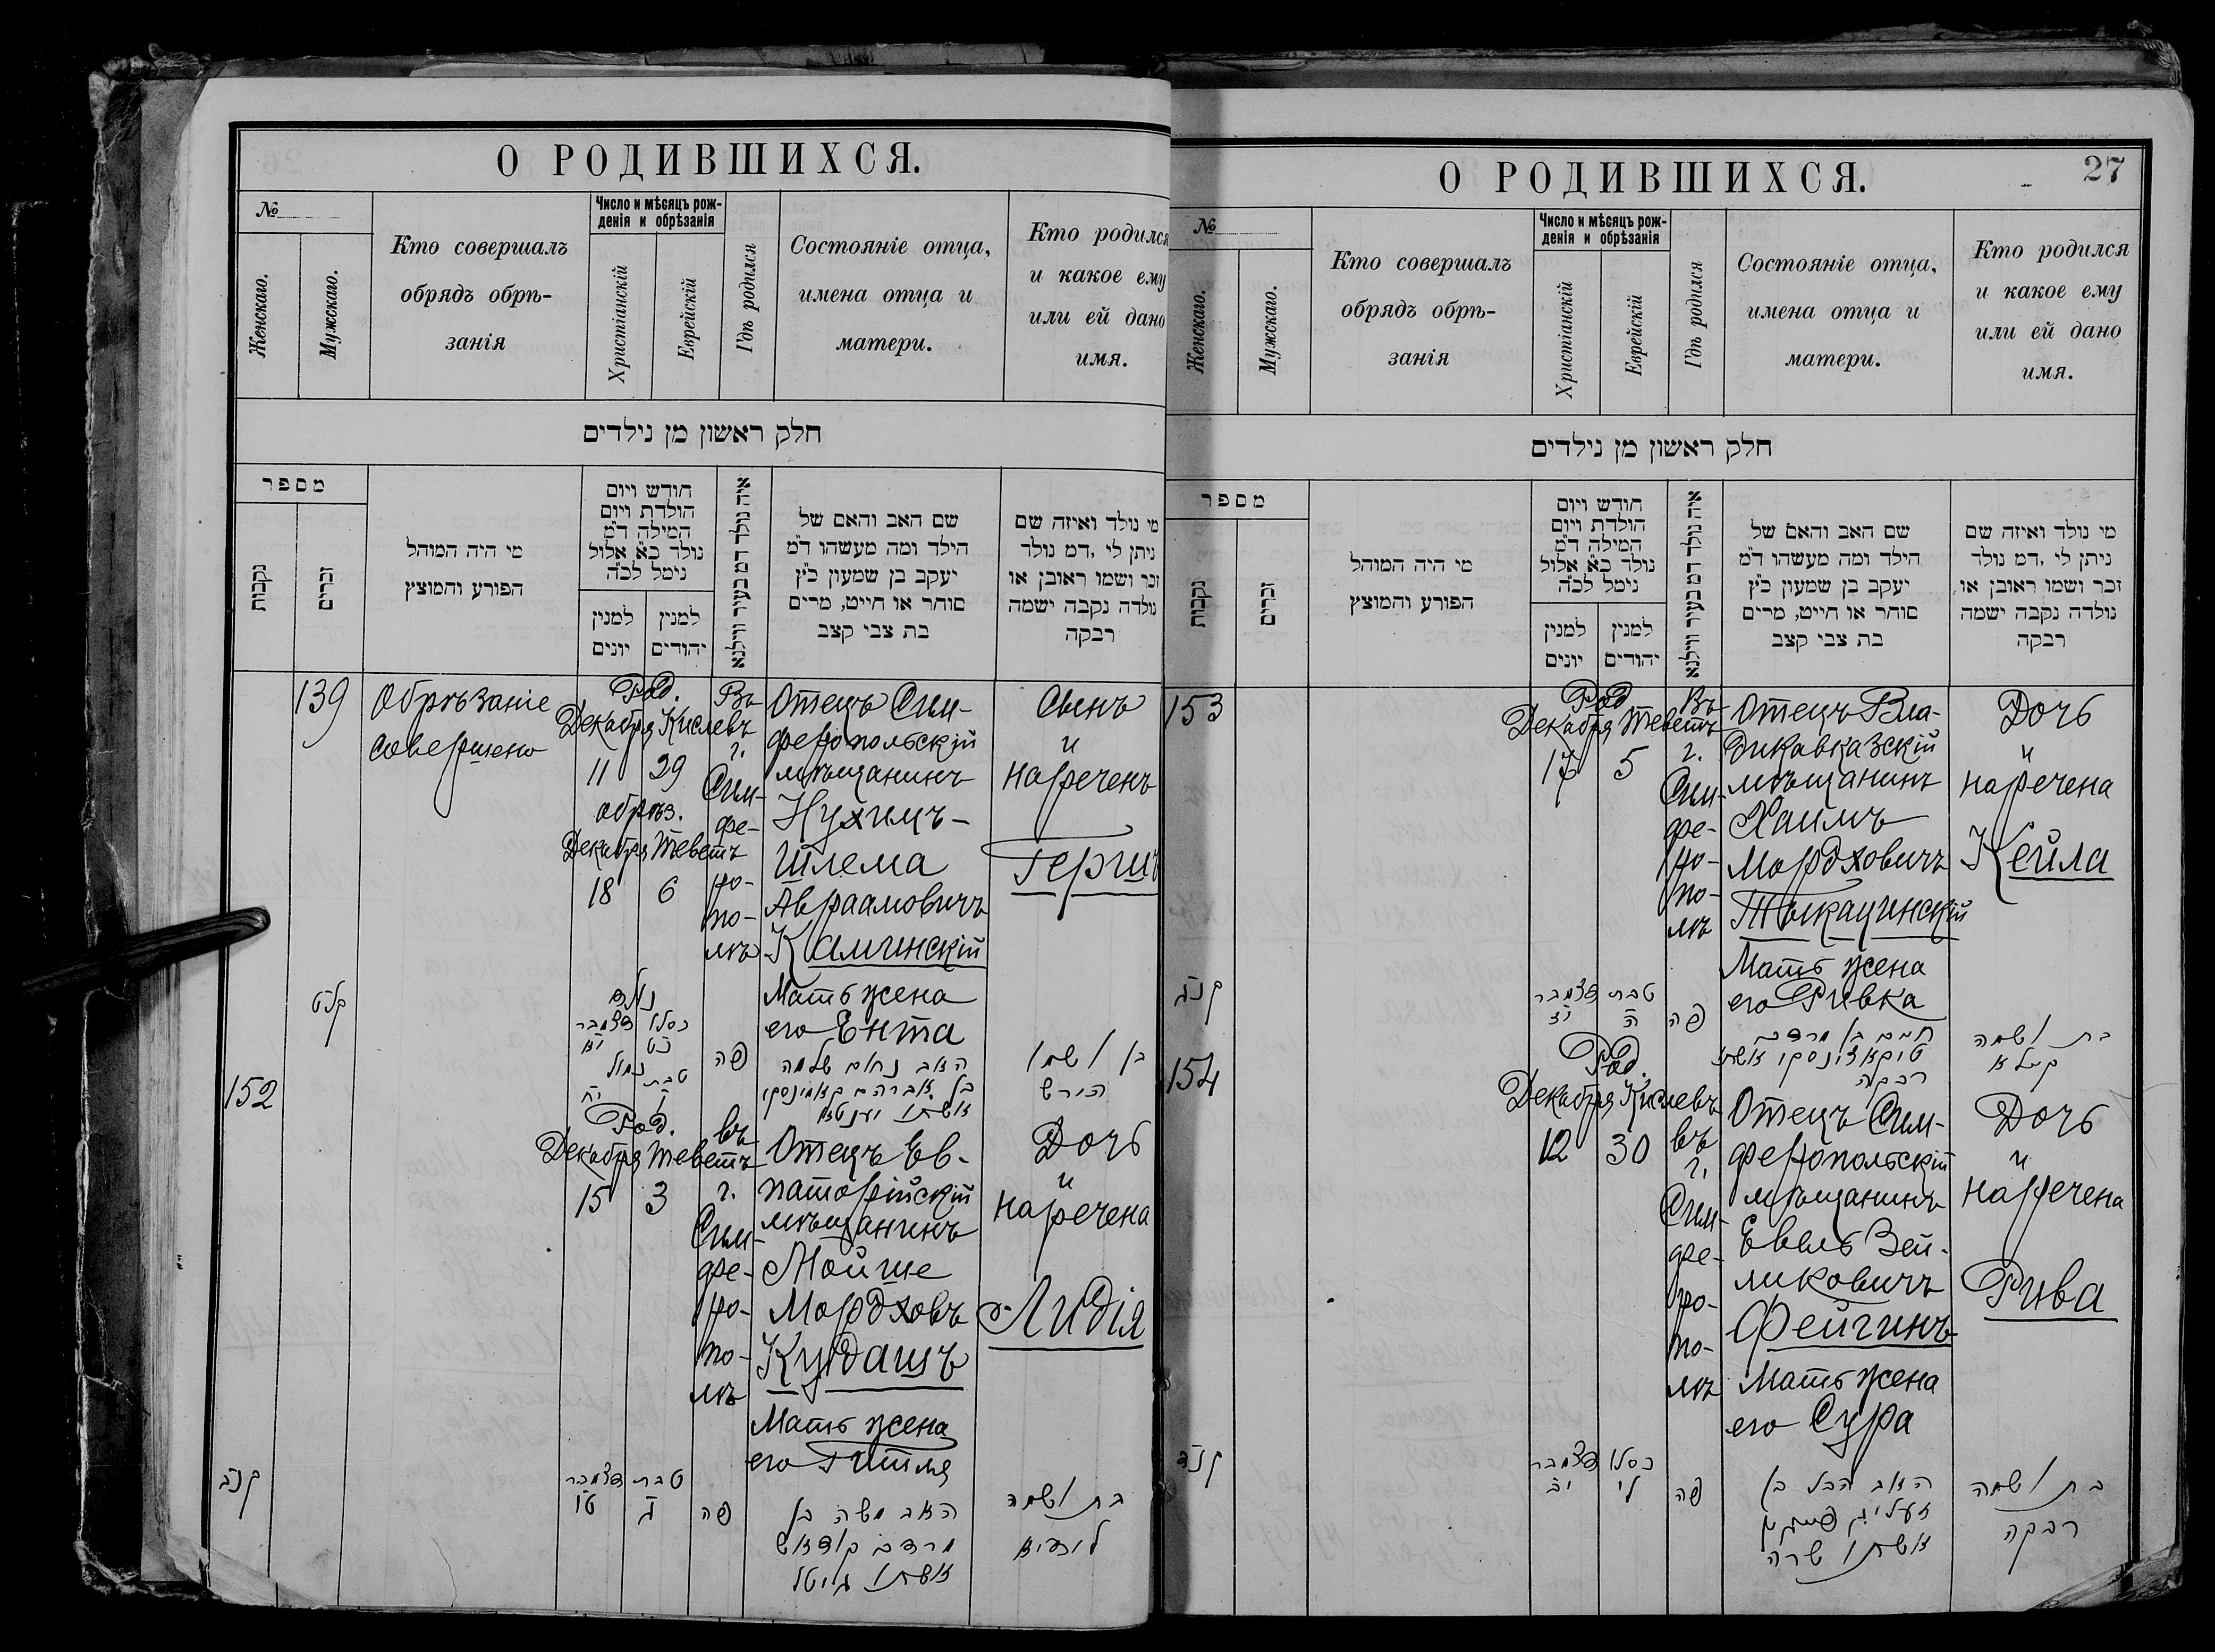 О РОДИВШИХСЯ.
№
Женскаго.
Мужскаго.
Кто совершалъ
обрядъ обрѣ-
занія
Число и мѣсяцъ рож-
денія и обрѣзанія
Христіанскій
Еврейскій
Гдѣ родился
Состояніе отца,
имена отца и
матери.
Кто родился
и какое ему
или ей дано
имя.
חלק ראשון מן נילדים
מספר
נקבות
זכרים
מי היה המוהל
הפורע והמוצץ
חודש ויום
הולדת ויום
המילה ד״מ
נולד כ״א אלול
נימל לכ״ה
למנין
יונים
למנין
יהודים
איה נולד דמ בעיר ווילנא
שם האב והאם של
הילד ומה מעשהו ד״מ
יעקב בן שמעון כ״ץ
סוחר או חייט, מרים
בת צבי קצב
מי נולד ואיזה שם
ניתן לי ,דמ נולד
זכר ושמו ראובן או
נולדה נקבה ישמה
רבקה
139
Обрѣзаніе
совершено
Род.
Декабря Кислевъ
11 29
обрѣз.
Декабря Теветъ
18 6
Въ
г.
Сим-
фе-
ро-
по-
лѣ
Отецъ Сим-
феропольскій
мѣщанинъ
Нухимъ-
Шлема
Авраамовичъ
Каминскій
Мать жена
его Ента
Сынъ
и
нареченъ
Гершъ
קלט
כסלו דצמבר
כט יא
נמול
טבת
ו יח
פה
האב נחום שלמה
בן אברהם קאמינסקי
אשתו יענטא
בן ושמו
הירש
152
Род.
Декабря Теветъ
15 3
въ
г.
Сим-
фе-
ро-
по-
лѣ
Отецъ Ев-
паторійскій
мѣщанинъ
Мойше
Мордховъ
Кудашъ
Мать жена
его Гитля
Дочь
и
наречена
Лидія
קנב
טבת דצמבר
ג טו
פה
האב משה בן
מרדכי קודאש
אשתו גיטל
בת ושמה
לידיא
О РОДИВШИХСЯ.
27
№
Женскаго.
Мужскаго.
Кто совершалъ
обрядъ обрѣ-
занія
Число и мѣсяцъ рож-
денія и обрѣзанія
Христіанскій
Еврейскій
Гдѣ родился
Состояніе отца,
имена отца и
матери.
Кто родился
и какое ему
или ей дано
имя.
חלק ראשון מן נילדים
מספר
נקבות
זכרים
מי היה המוהל
הפורע והמוצץ
חודש ויום
הולדת ויום
המילה ד״מ
נולד כ״א אלול
נימל לכ״ה
למנין
יונים
למנין
יהודים
איה נולד דמ בעיר ווילנא
שם האב והאם של
הילד ומה מעשהו ד״מ
יעקב בן שמעון כ״ץ
סוחר או חייט, מרים
בת צבי קצב
מי נולד ואיזה שם
ניתן לי ,דמ נולד
זכר ושמו ראובן או
נולדה נקבה ישמה
רבקה
153
Род
Декабря Теветъ
17 5
Въ
г.
Сим-
фе-
ро-
по-
лѣ
Отецъ Вла-
дикавказскій
мѣщанинъ
Хаимъ
Мордховичъ
Тыкацинскій
Мать жена
его Ривка
Дочь
и
наречена
Кейла
קנג
טבת דצמבר
ה יז
פה
חיים בן מרדכי
טיקאצינסקי אשתו
רבקה
בת ושמה
קיילא
154
Род.
Декабря Кислевъ
12 30
въ
г.
Сим-
фе-
ро-
по-
лѣ
Отецъ Сим-
феропольскій
мѣщанинъ
Евель Зей-
ликовичъ
Фейгинъ
Мать жена
его Сура
Дочь
и
наречена
Рива
קנד
כסלו דצמבר
לי יב
פה
האב הבל בן
זעליג פייגין
אשתו שרה
בת ושמה
רבקה